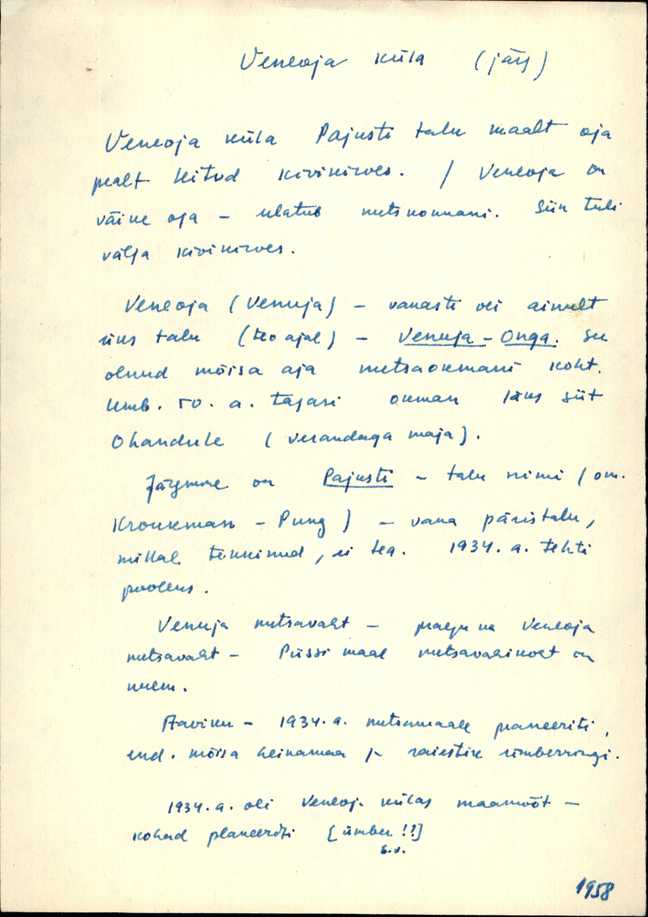 Veneoja küla (järg)
Veneoja küla Pajusti talu maalt oja
pealt leitud kivikirves. / Veneoja on
väike oja – ulatub metskonnani. Siin tuli
välja kivikirves.
Veneoja (Venuja) – vanasti oli ainult
üks talu (teo ajal) – Venuja-Onga. See
olnud mõisa aja metsaülemani koht.
Umb. 50. a. tagasi läks siit
Ohandule (verandaga maja).
Järgmine on Pajusti – talu nimi (om.
Kronkman – Pung) – vana päristalu,
millal tekkinud, ei tea. 1934. a. tehti
pooleks.
Venuja metsavaht – praegune Veneoja
metsavaht – Püssi maal metsavahikoht on
uuem.
Aaviku – 1934. a. metsamaale planeeriti,
end. mõisa heinamaa ja raiestik ümberringi.
1934. a. oli Veneoja külas maamõõt –
kohad planeeriti [ümber!!]
1958